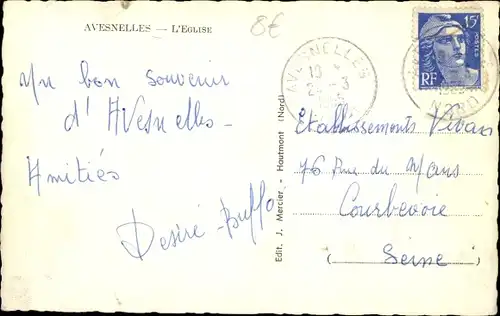 AVESNELLES — L'EGLISE
8€
Un bon souvenir
d'Avesnelles -
Amitiés
Desiré - Buffo
Edit. J. Mercier - Hautmont (Nord)
AVESNELLES
15F
POSTES
RF
NORD
Etablissements Vévan
76 Rue du Mans
Courbevoie
(Seine)